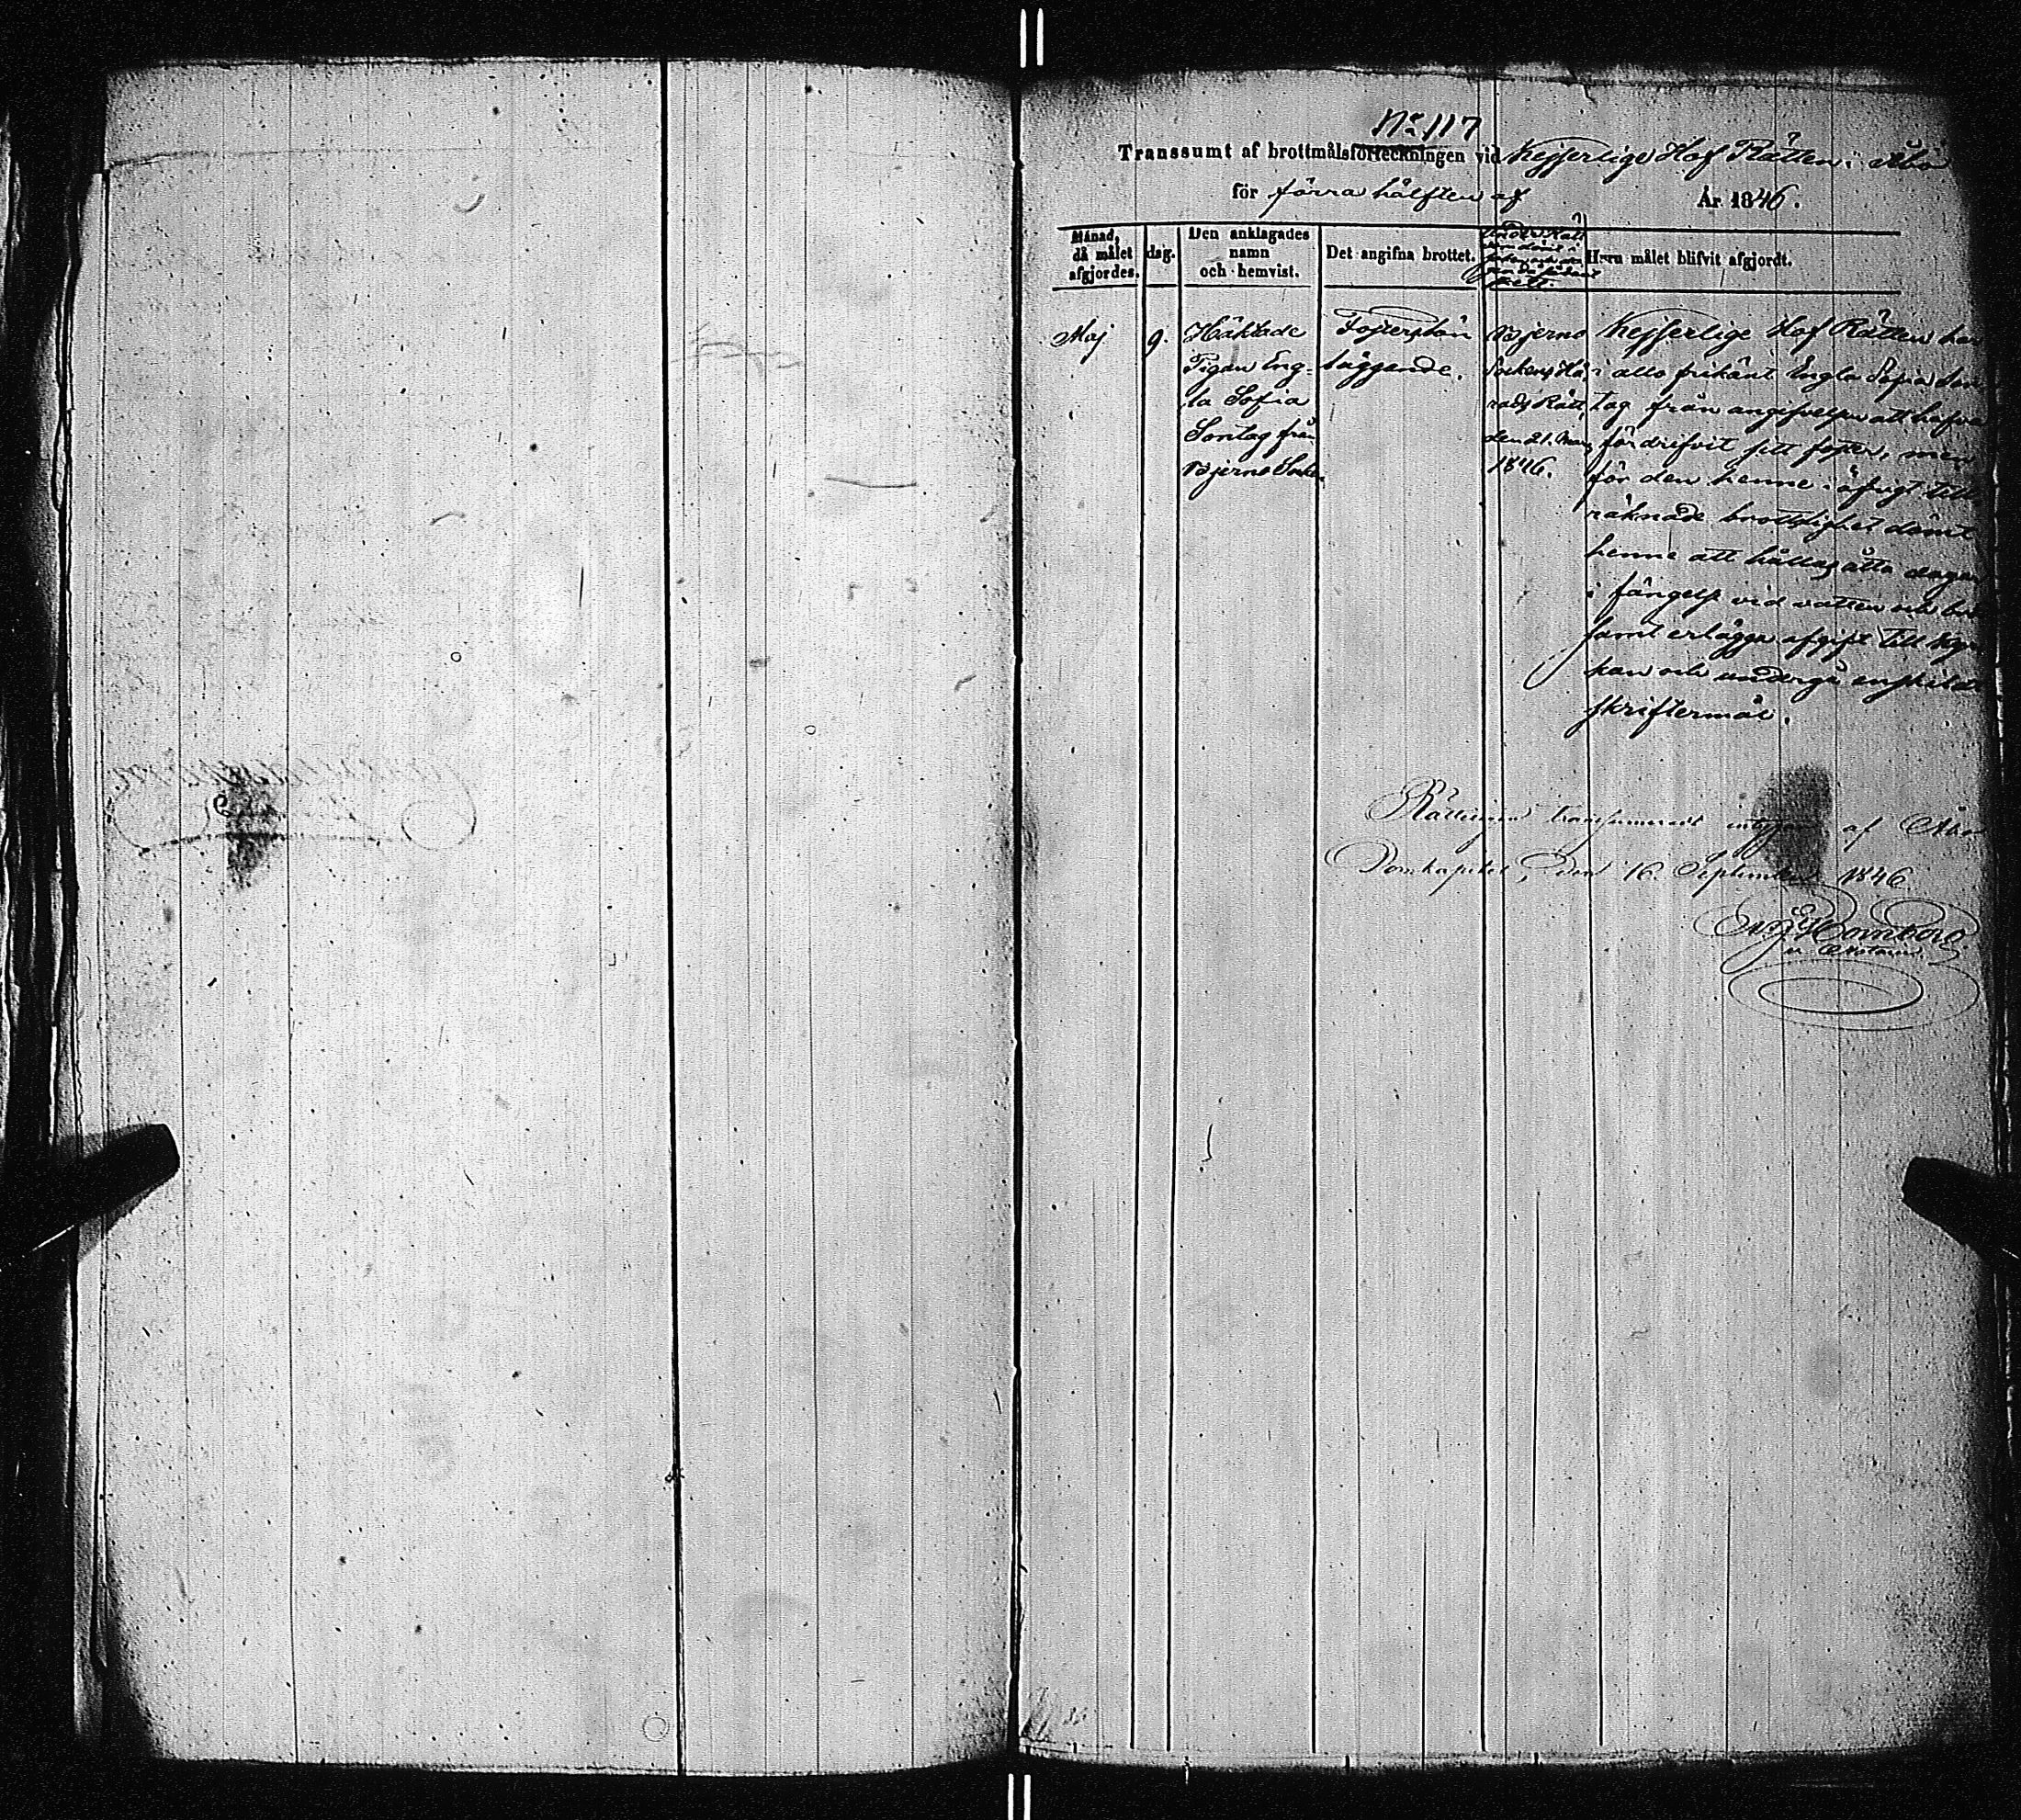 No 117
Transsumt af brottmålsförteckningen vid Kejserlige Hof Rätten i Åbo
för förra hälften af År 1846.
Månad, då målet afgjordes.
dag.
Den anklagades namn och hemvist.
Det angifna brottet.
Under Rätt
skett.
Huru målet blifvit afgjordt.
Maj
9.
Häktade
Pigan Eng-
la Sofia
Sontag från
Bjerno Socken
Fosterslön
läggande.
Bjerno
Sockens Hä-
rads Rätt
den 21. Mars
1846.
Kejserlige Hof Rätten har
i allo frikänt Engla Sofia Son
tag från angifvelsen att hafva
fördrifvit sitt foster, men
för den henne i öfrigt till
räknade brottslighet dömt
henne att hållas åtta dagar
i fängelse vid vatten och bröd
samt erlägga afgift till kyr
kan och undergå enskildt
skriftermål.
Rätteligen transumeradt intygar af Åbo
Domkapitel, den 16. September 1846.
Notarie